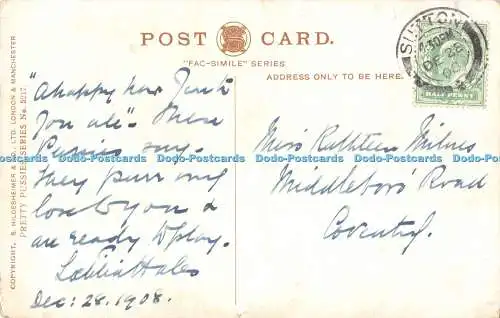 POST CARD.
"FAC-SIMILE" SERIES
ADDRESS ONLY TO BE HERE.
COPYRIGHT. S. HILDESHEIMER & CO., LTD. LONDON & MANCHESTER
PRETTY PUSSIES SERIES No. 5217.
"A happy New Year to
you all" – these
Pussies say.
They purr my
love to you &
are ready to play.
Hales
Dec: 28. 1908.
SUTTON
DE 28
HALFPENNY
Miss Kathleen Milnes
Middleboro' Road
Coventry.
Dodo-Postcards Dodo-Postcards Dodo-Postcards Dodo-Postcards Dodo-Postcards Dodo-Postcards